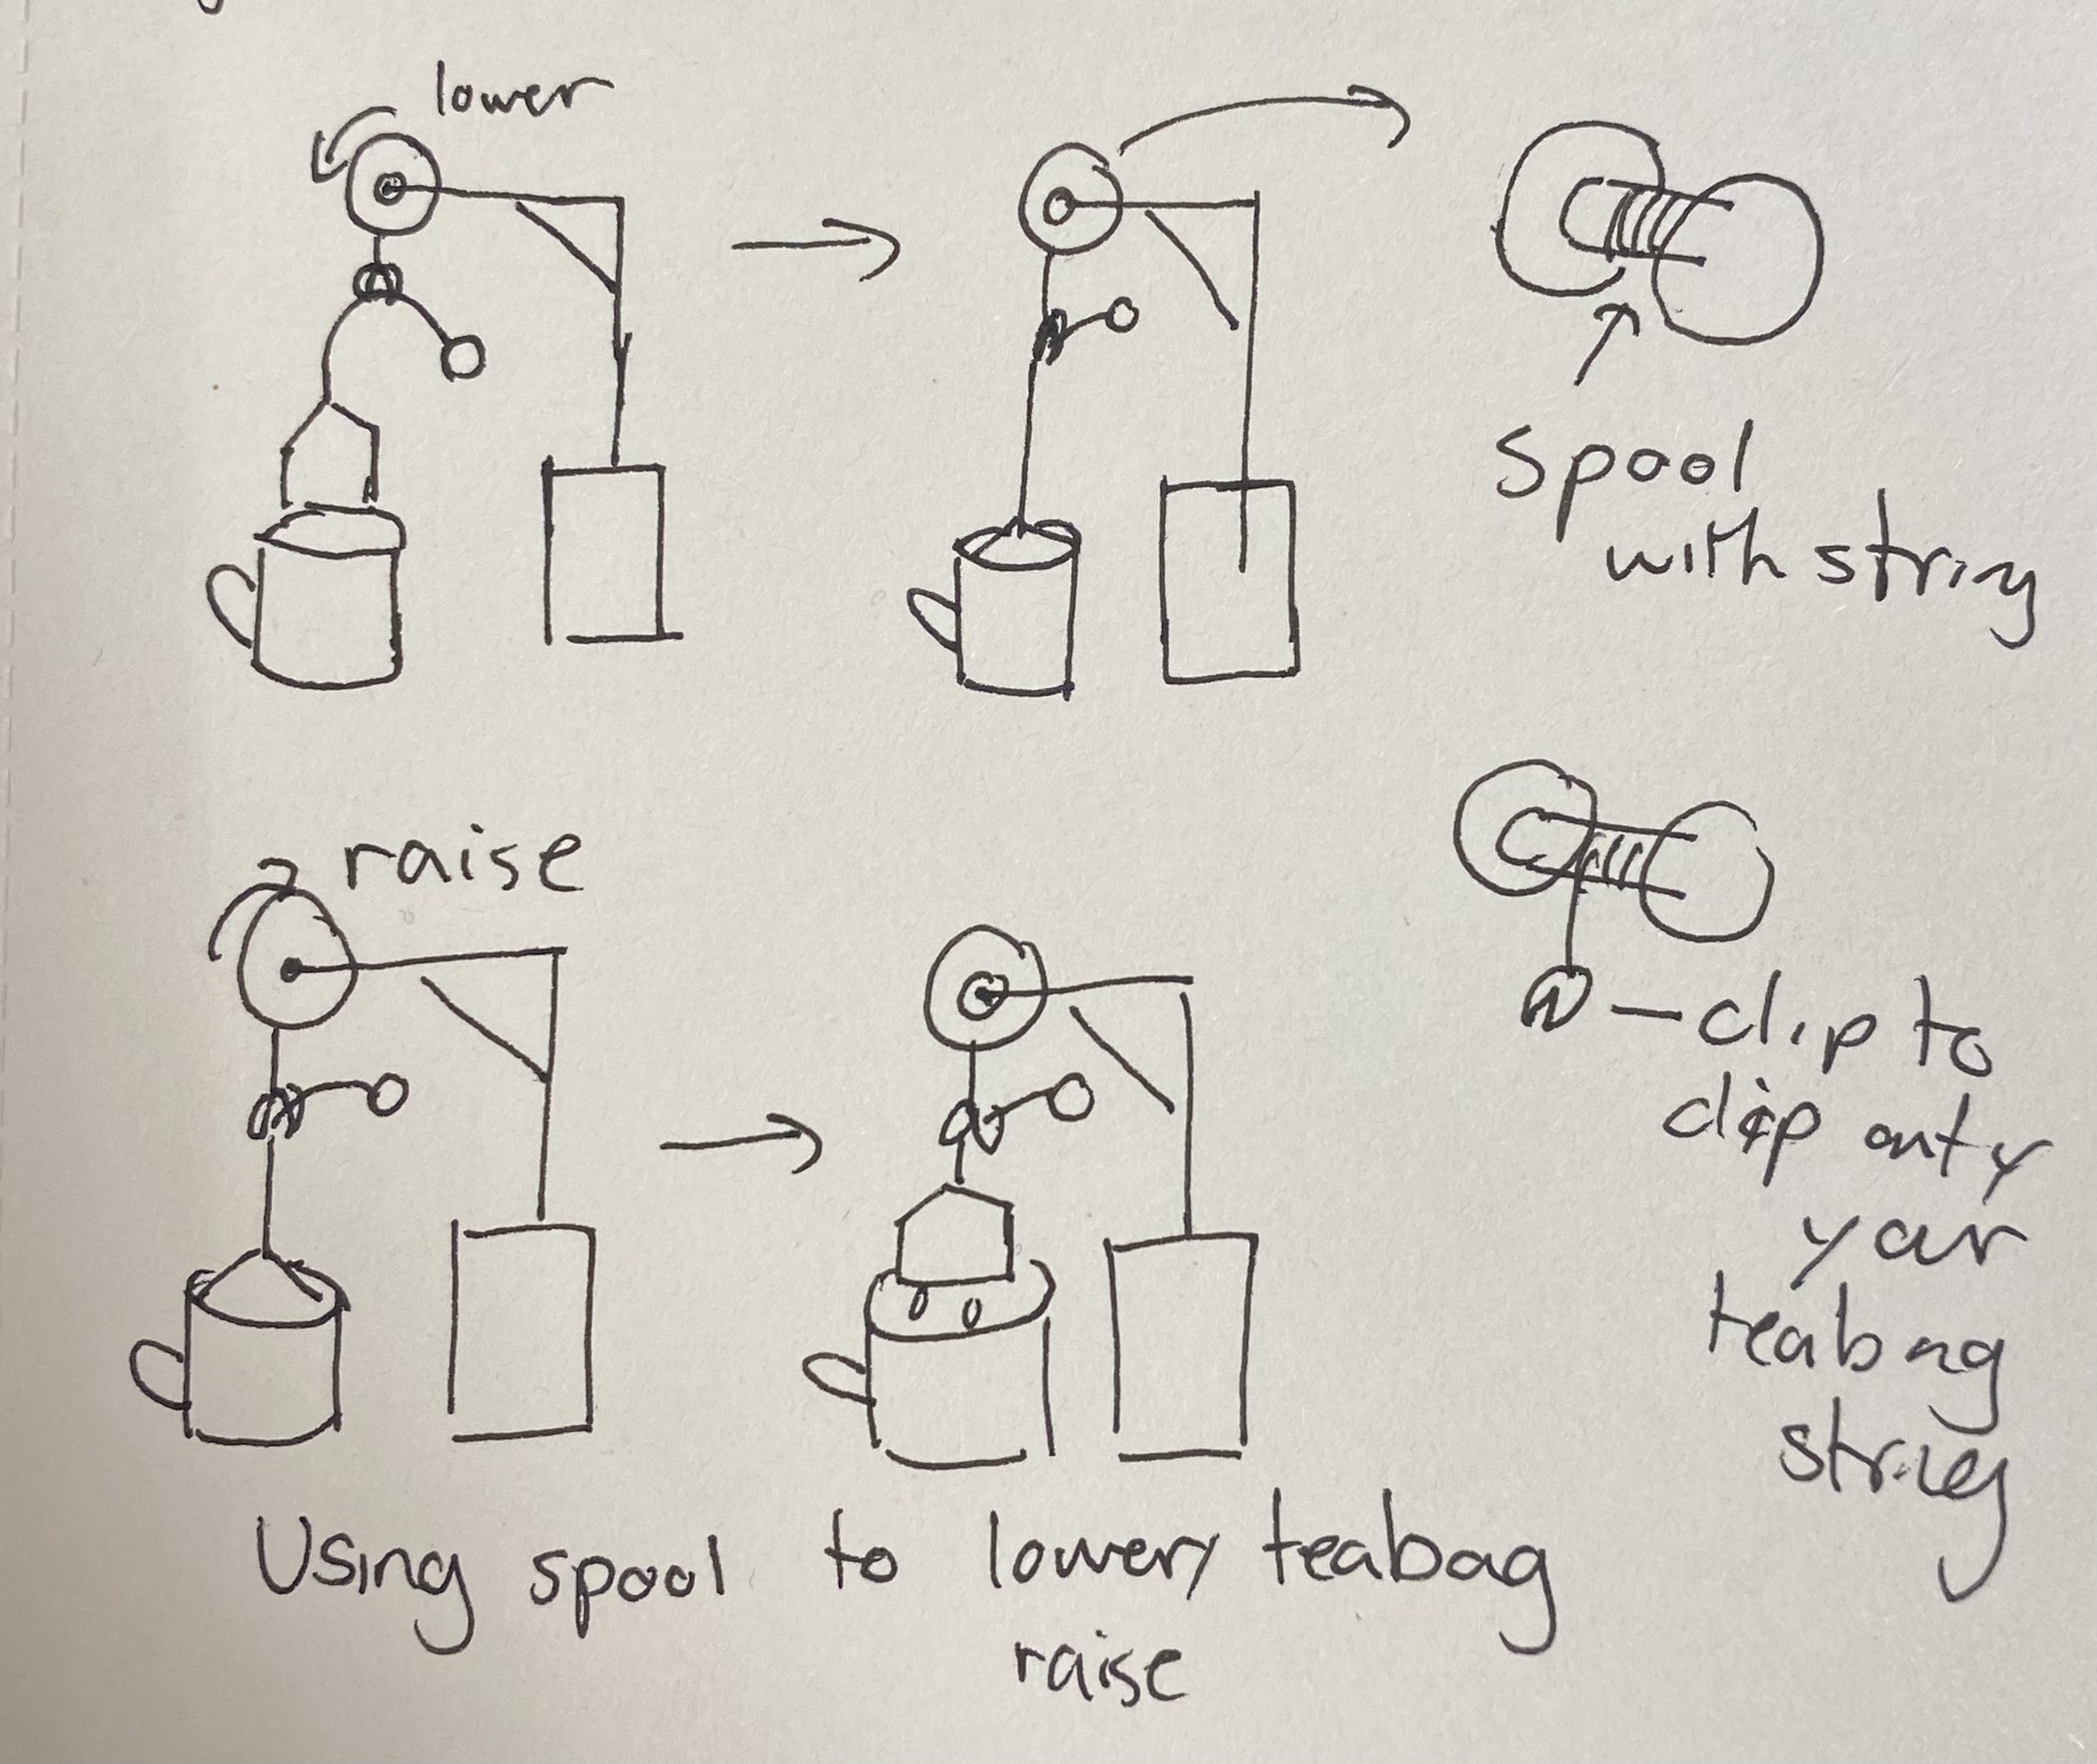 lower
spool
with string
raise
clip to
clip onty
your
teabag
string
Using spool to lower/ teabag
raise